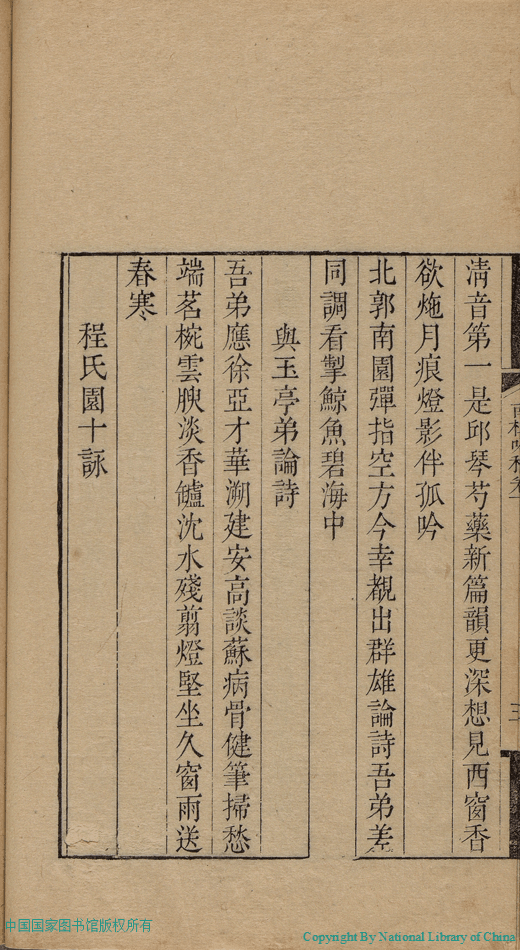 清音第一是邱琴芍藥新篇韻更深想見西窗香
欲灺月痕燈影伴孤吟
北郭南園彈指空方今幸覩出群雄論詩吾弟差
同調看掣鯨魚碧海中
與玉亭弟論詩
吾弟應徐亞才華溯建安高談蘇病骨健筆掃愁
端茗椀雲腴淡香罏沈水殘翦燈堅坐久窗雨送
春寒
程氏園十詠
三
中国国家图书馆版权所有
Copyright By National Library of China